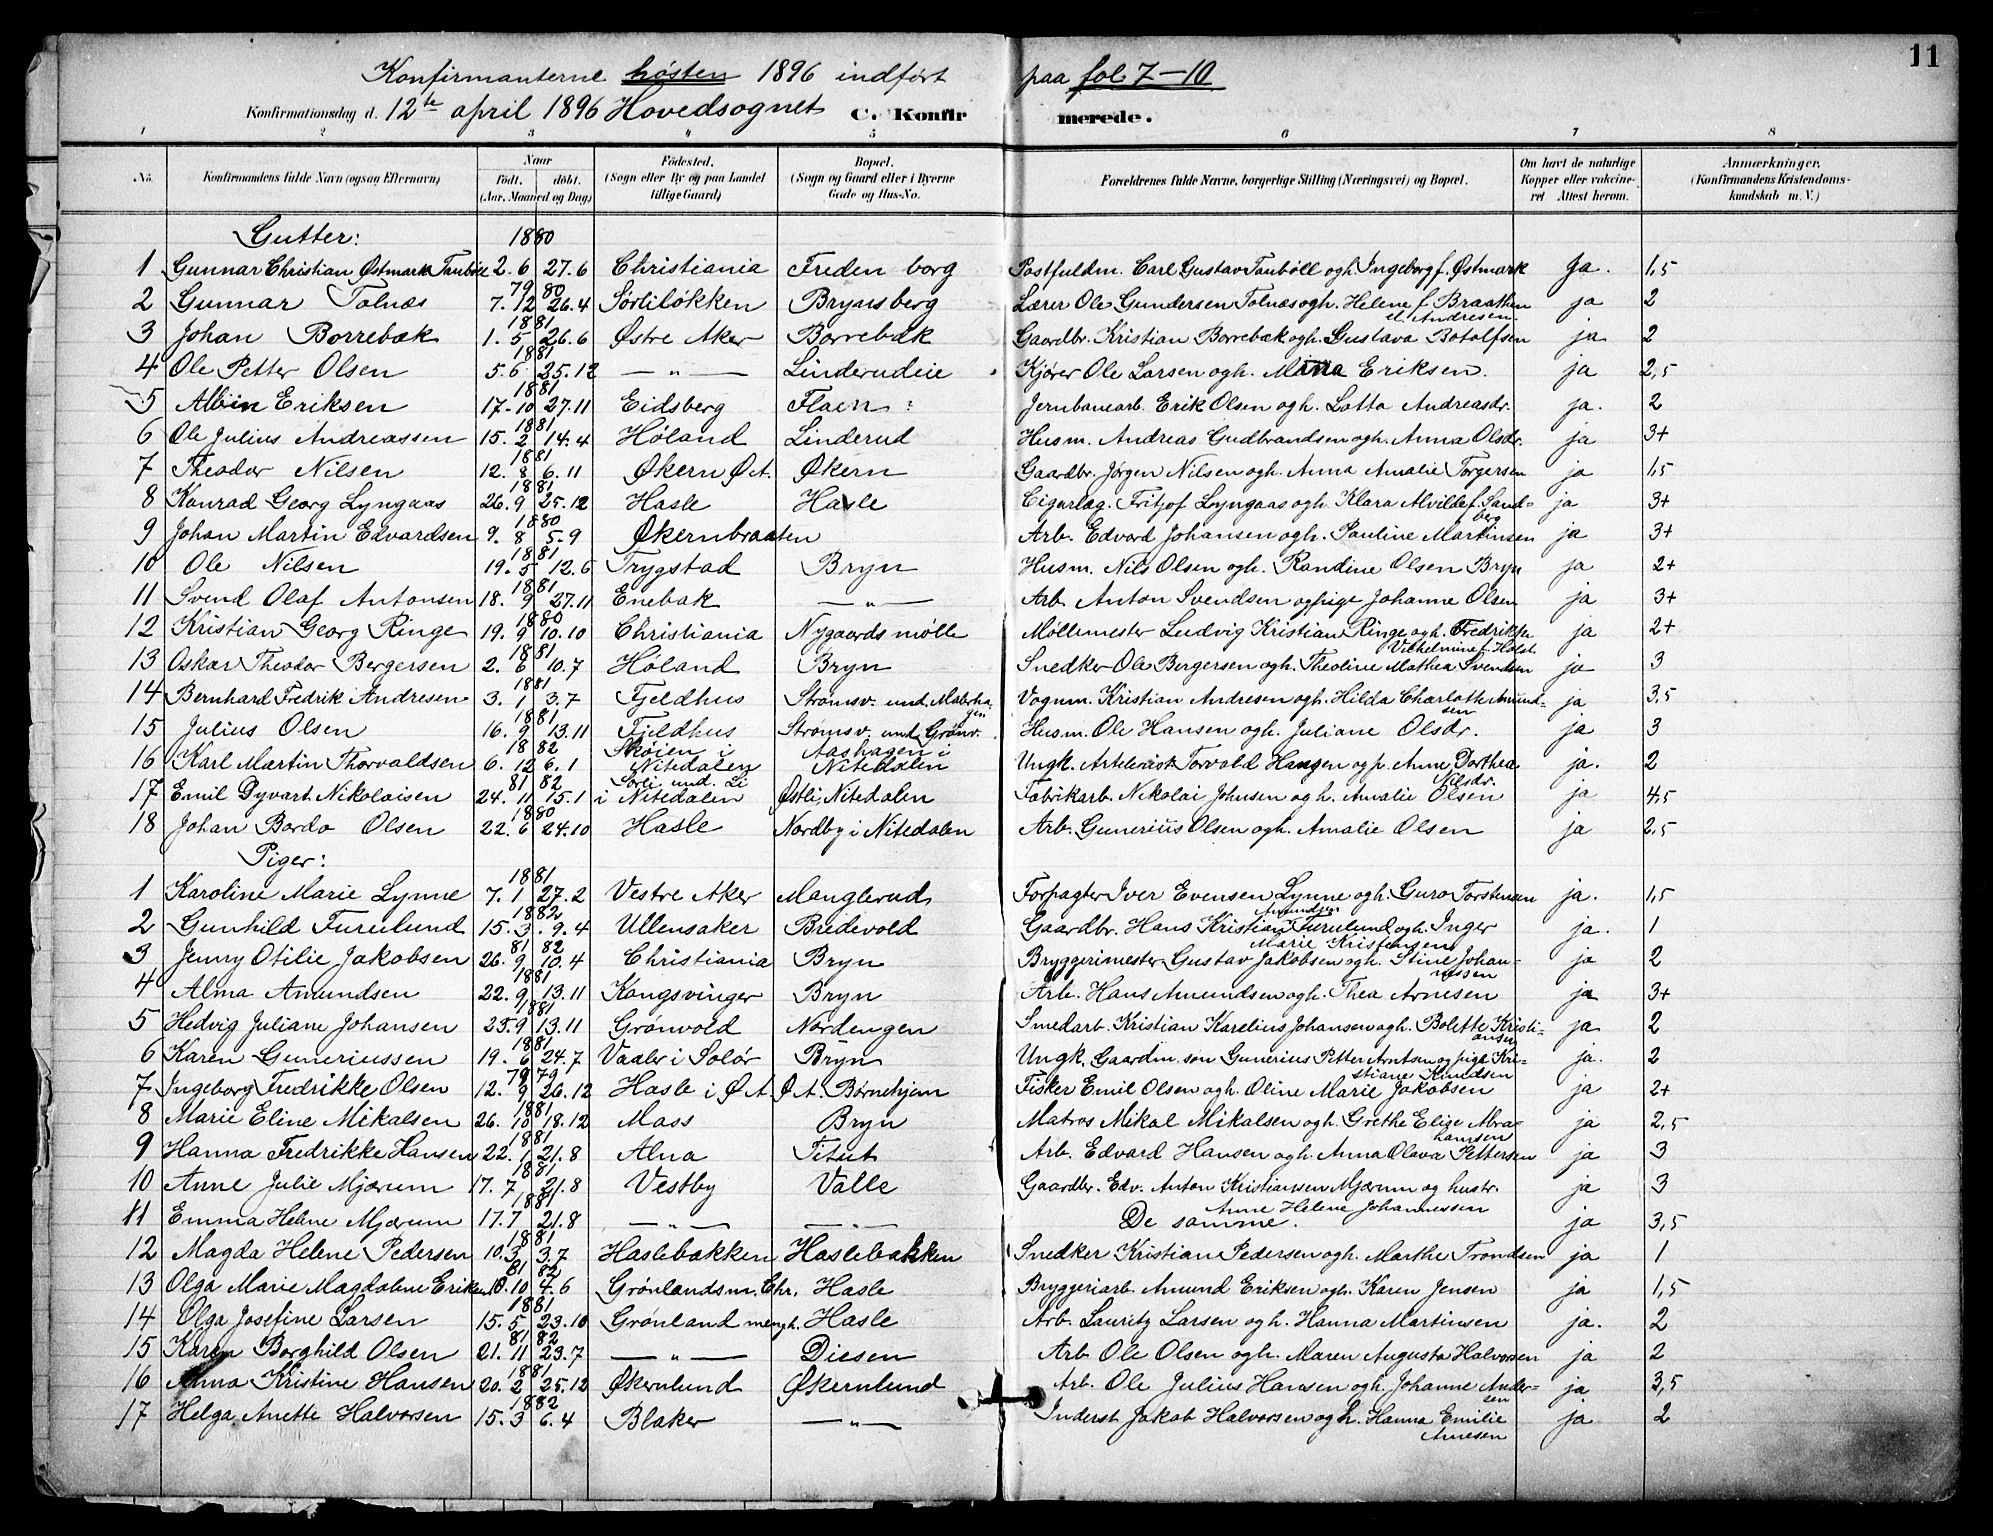 11
Konfirmanterne høsten 1896 indført paa fol 7-10
Konfirmationsdag d. 12te april 1896 Hovedsognet C. Konfirmerede.
1 2 3 4 5 6 7 8
No. Konfirmandens fulde Navn (ogsaa Efternavn) Naar født. døbt. (Aar, Maaned og Dag) Fødested. (Sogn eller By og paa Landet tillige Gaard) Bopæl. (Sogn og Gaard eller i Byerne Gade og Hus-No. Forældrenes fulde Navne, borgerlige Stilling (Næringsvei) og Bopæl. Om havt de naturlige Kopper eller vakcineret Attest herom. Anmærkninger. (Konfirmandens Kristendomskundskab m. V.)
Gutter: 1880
1 Gunnar Christian Østmark Tanbøll 2.6 27.6 Christiania Fredenborg Postfuldm. Carl Gustav Tanbøll og h. Ingeborg f. Østmark Ja. 1,5
79 80
2 Gunnar Tolnæs 7.12 26.4 Sørliløkken Brynsberg Lærer Ole Gundersen Tolnæs og h. Helene f. Braathen ja 2
1881 el. Andresen
3 Johan Borrebæk 1.5 26.6 Østre Aker Borrebæk Gaardbr. Kristian Borrebæk og h. Gustava Botolfsen ja 2
1881
4 Ole Petter Olsen 5.6 25.12 — „ — Linderudeie Kjører Ole Larsen og h. Eriksen. ja 2,5
1881
5 Albin Eriksen 17-10 27.11 Eidsberg Flaen Jernbanearb. Erik Olsen og h. Lotta Andreasdr. ja. 2
1881
6 Ole Julius Andreassen 15.2 14.4 Høland Linderud Husm. Andreas Gudbrandsen og h. Anna Olsdr. ja 3+
1881
7 Theodor Nilsen 12.8 6.11 Økern Ø.A. Økern Gaardbr. Jørgen Nilsen og h. Anna Amalie Torgersen ja 1,5
1881
8 Konrad Georg Lyngaas 26.9 25.12 Hasle Hasle Cigarlag. Fritjof Lyngaas og h. Klara Alvilde f. Sand- ja 3+
1880 berg
9 Johan Martin Edvardsen 9.8 5.9 Økernbraaten Arb. Edvard Johansen og h. Pauline Martinsen ja 3+
1881
10 Ole Nilsen 19.5 12.6 Trygstad Bryn Husm. Nils Olsen og h. Randine Olsen Bryn ja 2+
1881
11 Svend Olaf Antonsen 18.9 27.11 Enebak — „ — Arb. Anton Svendsen og pige Johanne Olsen ja 3+
1880
12 Kristian Georg Ringe 19.9 10.10 Christiania Nygaards mølle Møllemester Ludvig Kristian Ringe og h. Fredrikke ja 2+
1881 Vilhelmine f. Holst
13 Oskar Theodor Bergersen 2.6 10.7 Høland Bryn Snedker Ole Bergersen og h. Theoline Mathea Svendsen ja 3
1881
14 Bernhard Fredrik Andresen 3.1 3.7 Fjeldhus Strømsv. und. Malerha- Vognm. Kristian Andresen og h. Hilda Charlotte Amund- ja 3,5
1881 gen sen
15 Julius Olsen 16.9 13.11 Fjeldhus Strømsv. und Grønv. Husm. Ole Hansen og h. Juliane Olsdr. ja 3
1882 Skøien i Aashagen i
16 Karl Martin Thorvaldsen 6.12 6.1 Nitedalen Nitedalen Ungk. Torvald Haugen og p. Anne Dorthea ja. 2
81 82 Sørli und. Li Nilsdr.
17 Emil Dyvart Nikolaisen 24.11 15.1 i Nitedalen Østli, Nitedalen Fabrikarb. Nikolai Johnsen og h. Amalie Olsen ja 4,5
1880
18 Johan Bordo Olsen 22.6 24.10 Hasle Nordby i Nitedalen Arb. Gunerius Olsen og h. Amalie Olsen ja 2,5
Piger:
1881
1 Karoline Marie Lynne 7.1 27.2 Vestre Aker Manglerud Forpagter Iver Evensen Lynne og h. Guro Torstensen ja. 1,5
1882 Amundsen
2 Gunhild Furulund 15.3. 9.4 Ullensaker Bredevold Gaardbr. Hans Kristian Furulund og h. Inger ja. 1
81 82 Marie Kristensen
3 Jenny Otilie Jakobsen 26.9 10.4 Christiania Bryn Bryggerimester Gustav Jakobsen og h. Stine Johan- ja 2
1881 nessen
4 Alma Amundsen 22.9 13.11 Kongsvinger Bryn Arb. Hans Amundsen og h. Thea Arnesen ja 3+
1881
5 Hedvig Juliane Johansen 25.9 13.11 Grønvold Nordengen Smedarb. Kristian Karelius Johansen og h. Bolette Kristi- ja. 2
1881 ansen
6 Karen Guneriussen 19.6 24.7 Vaaler i Solør Bryn Ungk. Gaardm. søn Gunerius Petter Arntsen og pige Kri- ja. 2
79 79 stiane Knudsen
7 Ingeborg Fredrikke Olsen 12.9 26.12 Hasle i Ø.A. Ø.A. Børnehjem Fisker Emil Olsen og h. Oline Marie Jakobsen ja 2+
1881
8 Marie Eline Mikalsen 26.10 18.12 Moss Bryn Matros Mikal Mikalsen og h. Grethe Elise Abra- ja 2,5
1881 hamsen
9 Hanna Fredrikke Hansen 22.1 21.8 Alna Titut Arb. Edvard Hansen og h. Anna Olava Pettersen ja 3
1881
10 Anne Julie Mjærum 17.7 21.8 Vestby Valle Gaardbr. Edv. Anton Kristiansen Mjærum og hustr. ja 3
1881 Anne Helene Johannessen
11 Emma Helene Mjærum 17.7 21.8 — „ — — „ — De samme. ja 3,5
1881
12 Magda Helene Pedersen 10.3 3.7 Haslebakken Haslebakken Snedker Kristian Pedersen og h. Marthe Trondsen ja 1
81 82
13 Olga Marie Magdalene Eriksen 10 4.6 Grønlandsm. Chr. Hasle Bryggeriarb. Amund Eriksen og h. Karen Jensen ja 1,5
1881
14 Olga Josefine Larsen 15.5 23.10 Grønland mengh. Hasle Arb. Lauritz Larsen og h. Hanna Martinsen ja. 2
81 82
15 Karen Borghild Olsen 21.11 23.7 — „ — Disen Arb Ole Olsen og h. Maren Augusta Halvorsen ja 2
1881
16 Anna Kristine Hansen 20.2 25.12 Økernlund Økernlund Arb. Ole Julius Hansen og h. Johanne Ander- ja 3,5
1882 sen
17 Helga Anette Halvorsen 15.3 6.4 Blaker — „ — Inderst Jakob Halvorsen og h. Hanna Emilie ja 2
Arnesen